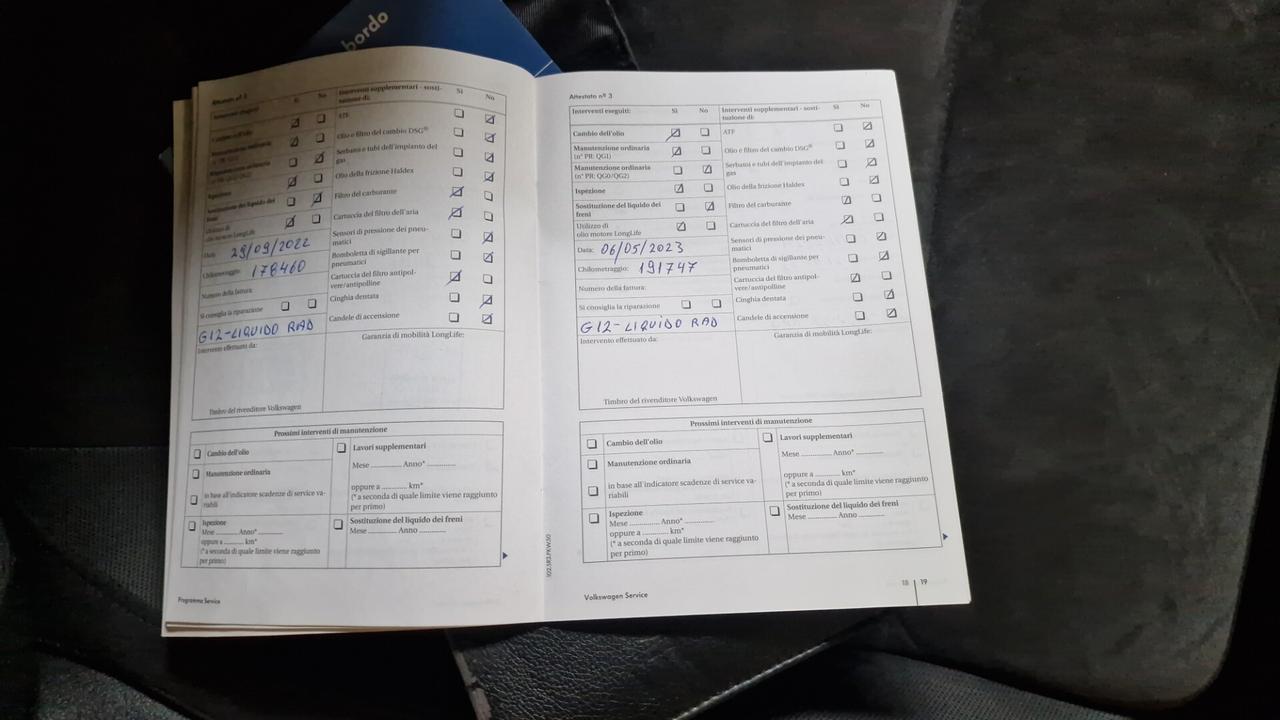 bordo
Attestato nº 2
Interventi eseguiti: Sì No
Cambio dell'olio
Manutenzione ordinaria
(nº PR: QG1)
Manutenzione ordinaria
(nº PR: QG0/QG2)
Ispezione
Sostituzione del liquido dei
freni
Utilizzo di
olio motore LongLife
Data: 29/09/2022
Chilometraggio: 178460
Numero della fattura:
Si consiglia la riparazione
G12-LIQUIDO RAD
Intervento effettuato da:
Timbro del rivenditore Volkswagen
Interventi supplementari - sosti-
tuzione di: Sì No
ATF
Olio e filtro del cambio DSG®
Serbatoi e tubi dell'impianto del
gas
Olio della frizione Haldex
Filtro del carburante
Cartuccia del filtro dell'aria
Sensori di pressione dei pneu-
matici
Bomboletta di sigillante per
pneumatici
Cartuccia del filtro antipol-
vere/antipolline
Cinghia dentata
Candele di accensione
Garanzia di mobilità LongLife:
Prossimi interventi di manutenzione
Cambio dell'olio
Manutenzione ordinaria
in base all'indicatore scadenze di service va-
riabili
Ispezione
Mese .............. Anno* ..............
oppure a ........... km*
(* a seconda di quale limite viene raggiunto
per primo)
Lavori supplementari
Mese .............. Anno* ..............
oppure a ........... km*
(* a seconda di quale limite viene raggiunto
per primo)
Sostituzione del liquido dei freni
Mese .............. Anno ..............
Programma Service
Attestato nº 3
Interventi eseguiti: Sì No
Cambio dell'olio
Manutenzione ordinaria
(nº PR: QG1)
Manutenzione ordinaria
(nº PR: QG0/QG2)
Ispezione
Sostituzione del liquido dei
freni
Utilizzo di
olio motore LongLife
Data: 06/05/2023
Chilometraggio: 191747
Numero della fattura:
Si consiglia la riparazione
G12-LIQUIDO RAD
Intervento effettuato da:
Timbro del rivenditore Volkswagen
Interventi supplementari - sosti-
tuzione di: Sì No
ATF
Olio e filtro del cambio DSG®
Serbatoi e tubi dell'impianto del
gas
Olio della frizione Haldex
Filtro del carburante
Cartuccia del filtro dell'aria
Sensori di pressione dei pneu-
matici
Bomboletta di sigillante per
pneumatici
Cartuccia del filtro antipol-
vere/antipolline
Cinghia dentata
Candele di accensione
Garanzia di mobilità LongLife:
Prossimi interventi di manutenzione
Cambio dell'olio
Manutenzione ordinaria
in base all'indicatore scadenze di service va-
riabili
Ispezione
Mese .............. Anno* ..............
oppure a ........... km*
(* a seconda di quale limite viene raggiunto
per primo)
Lavori supplementari
Mese .............. Anno* ..............
oppure a ........... km*
(* a seconda di quale limite viene raggiunto
per primo)
Sostituzione del liquido dei freni
Mese .............. Anno ..............
Volkswagen Service
18 | 19